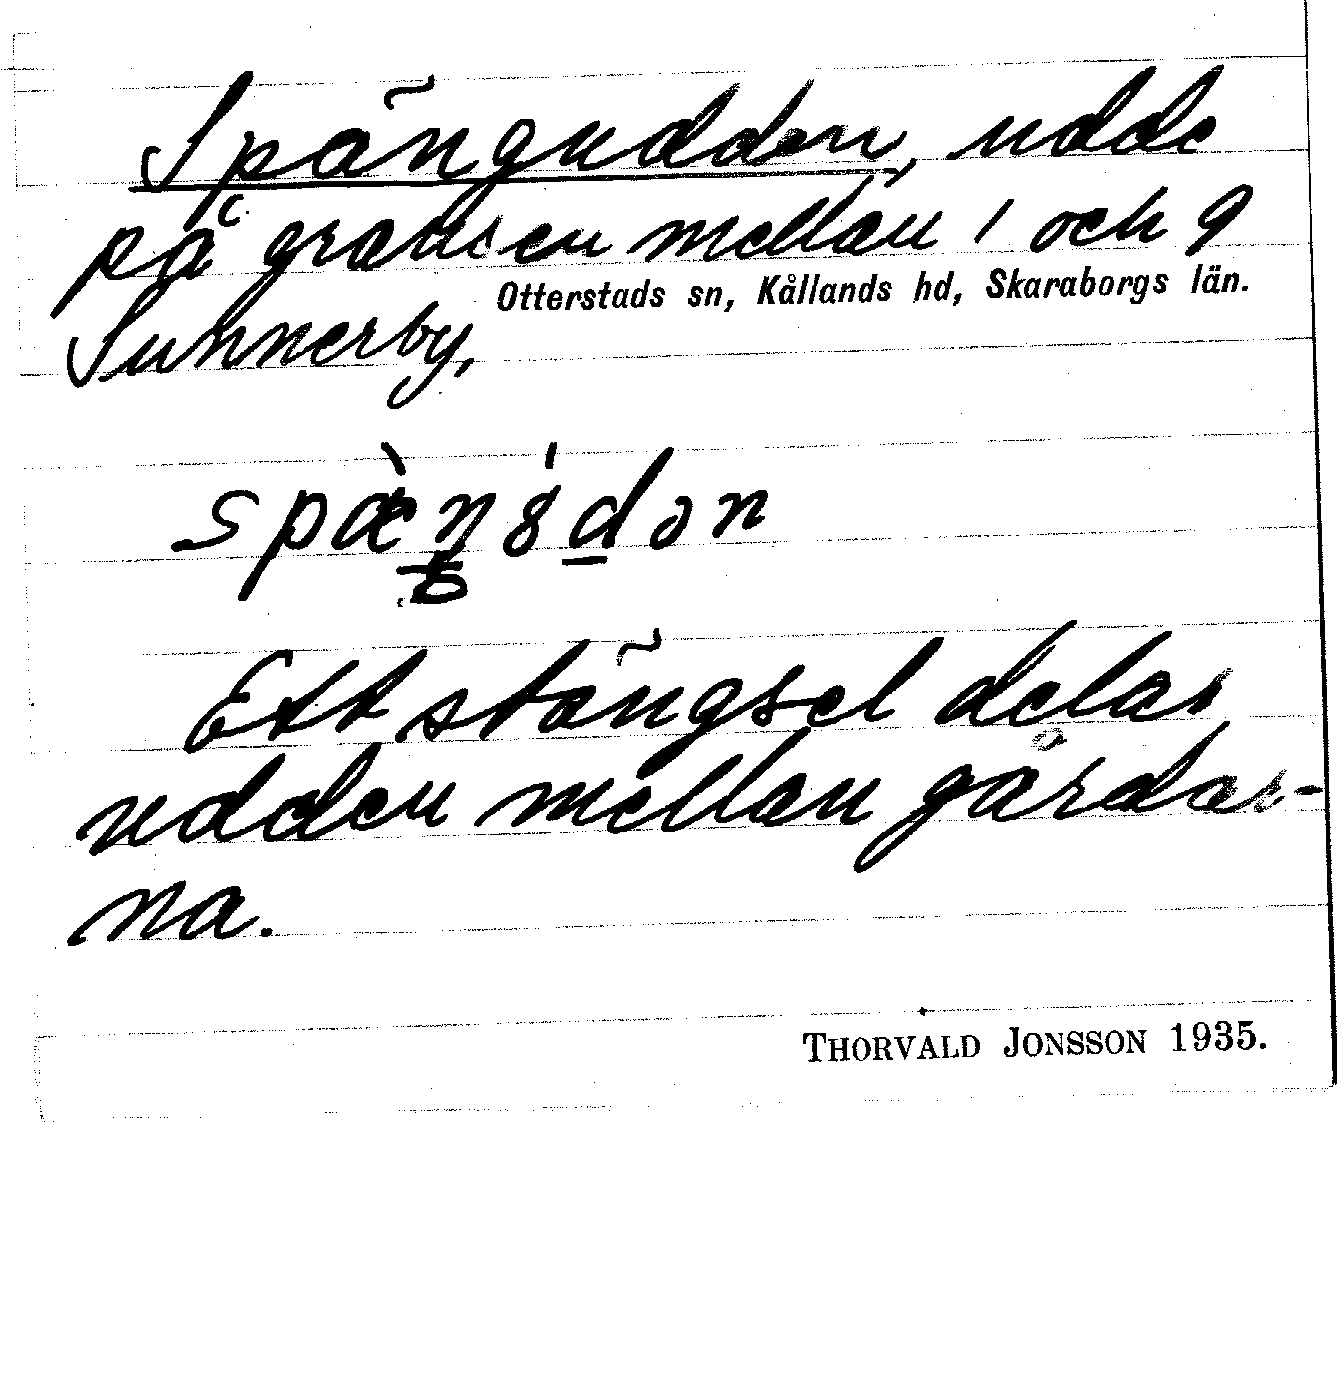 Spängudden, udde
på gränsen mellan 1 och 9
Otterstads sn, Kållands hd, Skaraborgs län.
Sunnerby,
Ett stängsel delar
udden mellan gårdar-
na.
THORVALD JONSSON 1935.